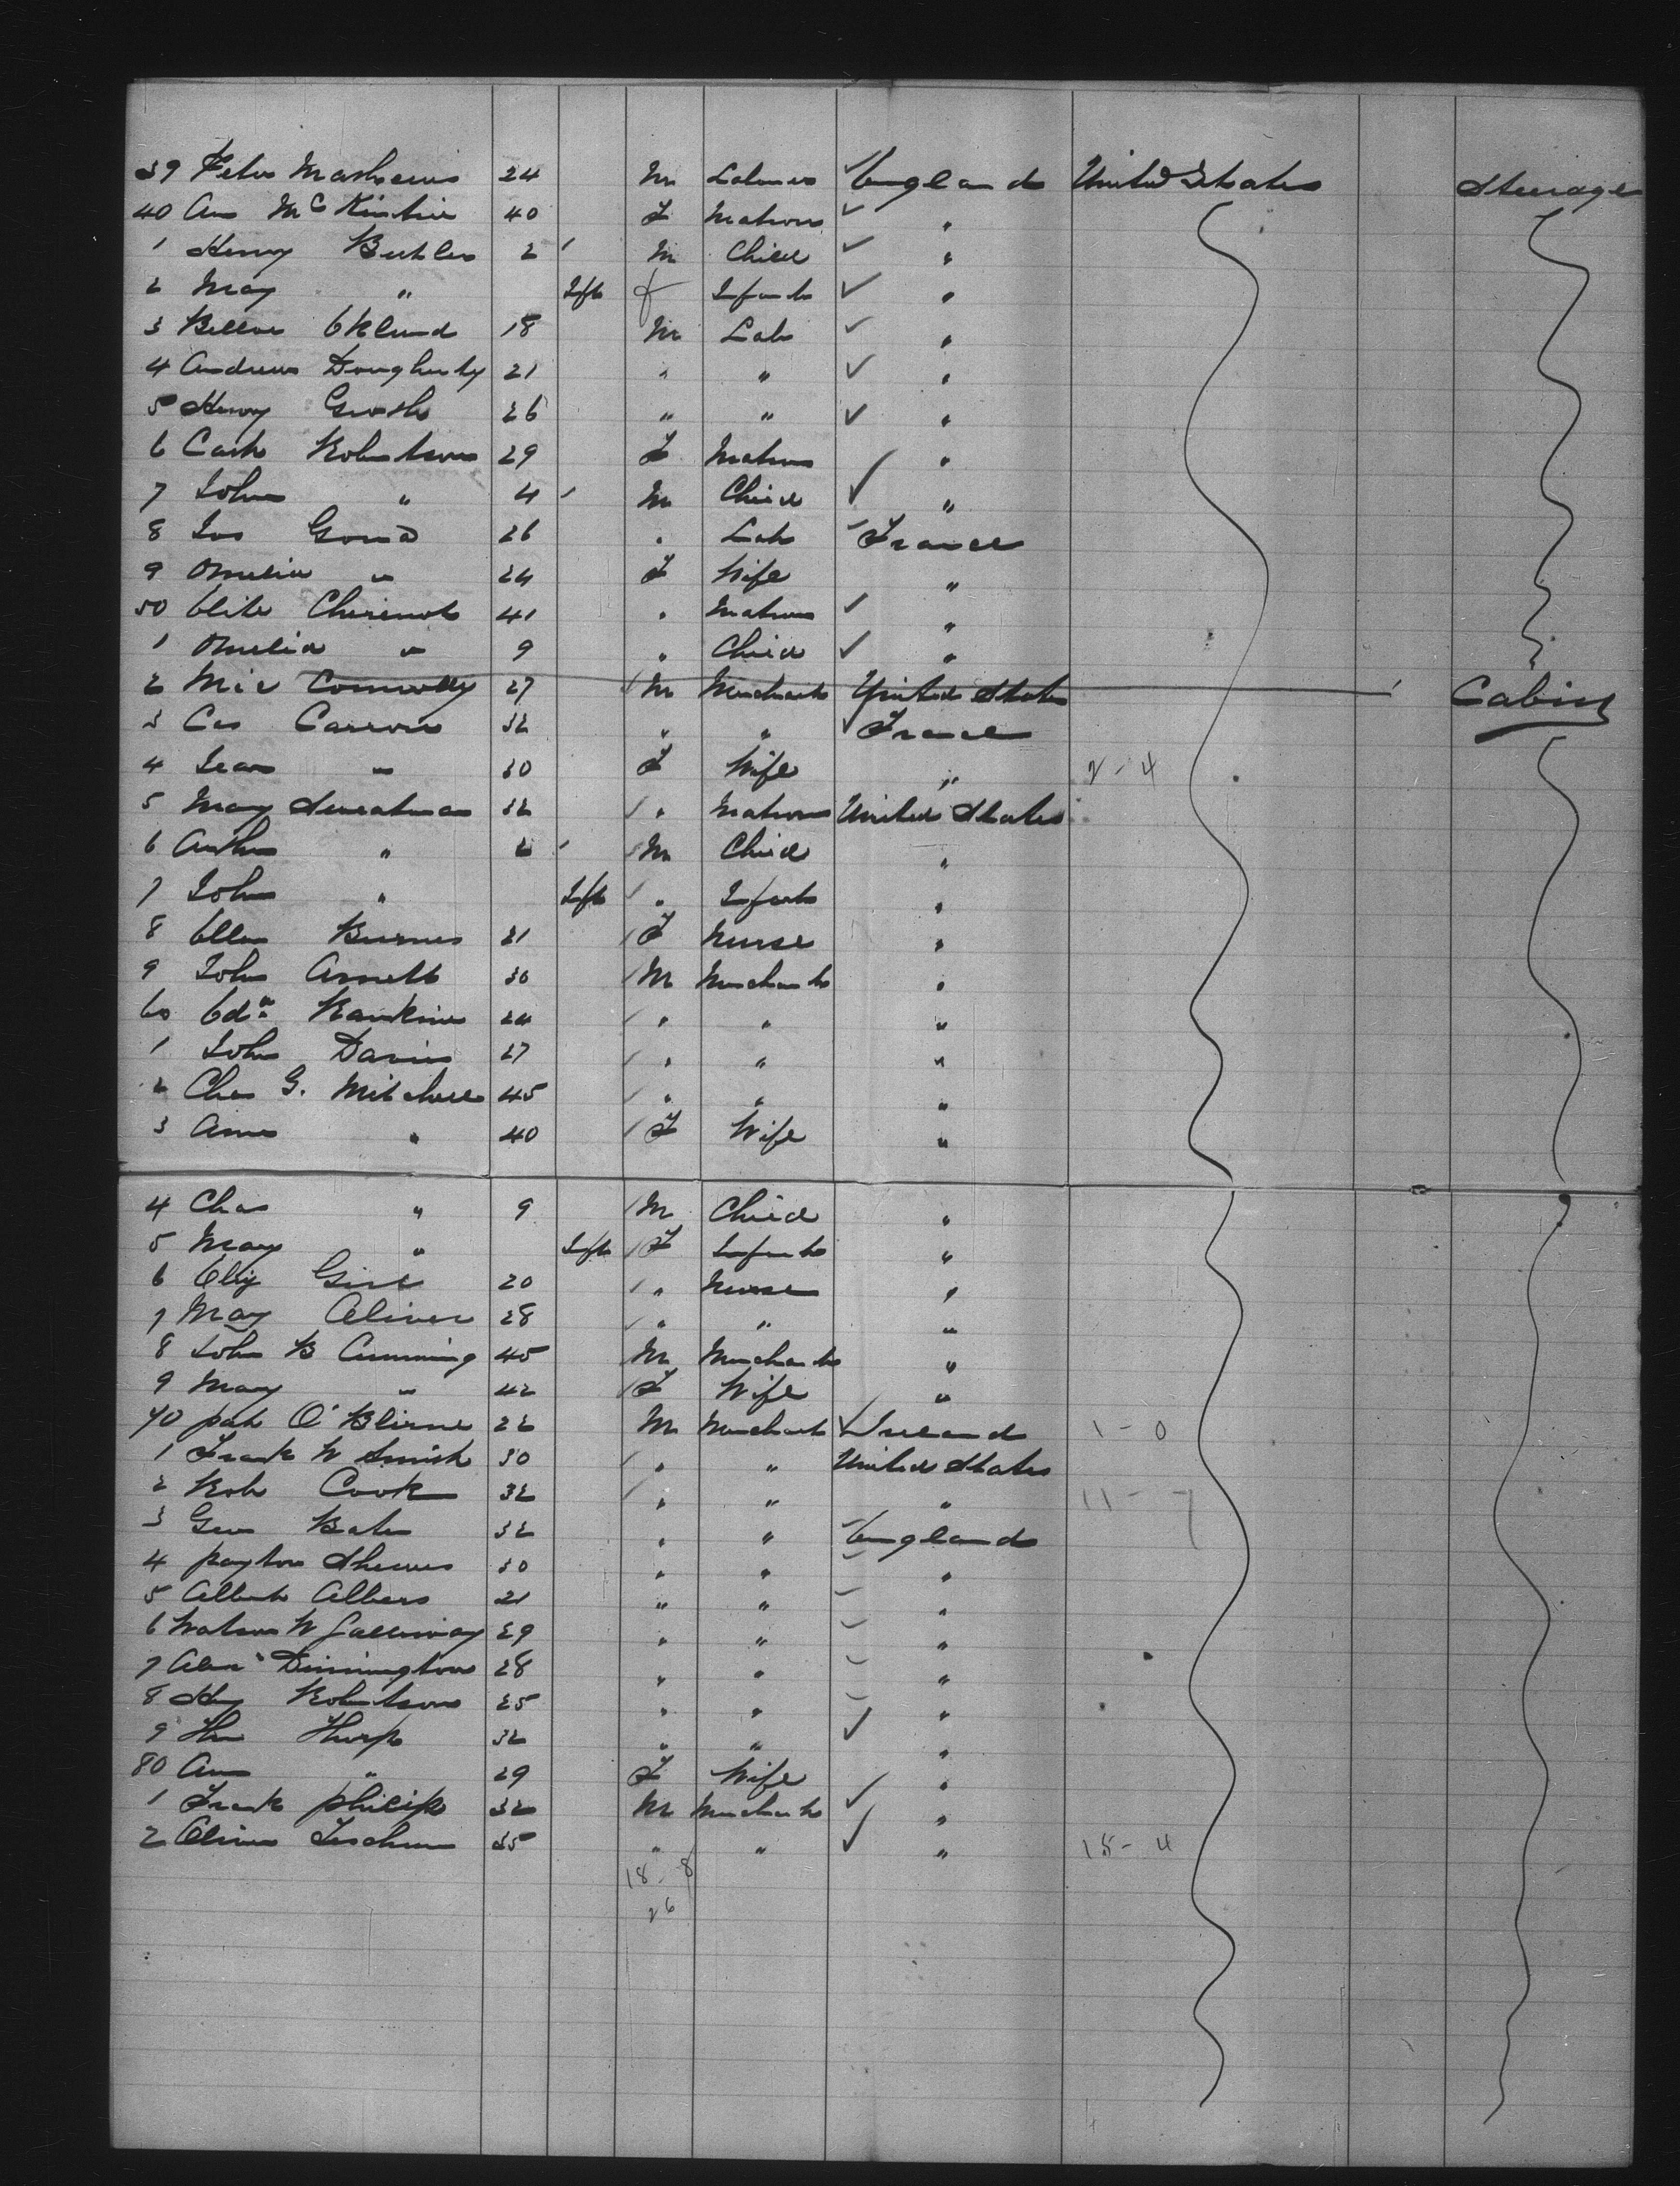 39 Peter Mathews 24 M Labourer England United States Steerage
40 Ann McKentrie 40 F Matron "
1 Henry Buhler 2 M Child "
2 May " Inft f Infant "
3 Eklund 18 M Lab "
4 Andrew Dougherty 21 " " "
5 Henry 26 " " "
6 Cath Robertson 29 F Matron "
7 John " 4 M Child "
8 Jos 26 " Lab France
9 Amelia " 24 F Wife "
50 Elite 41 " Matron "
1 Amelia " 9 " Child "
2 Mic Connolly 27 M Merchant United States Cabin
3 32 " " France
4 Jean " 30 F Wife " 2-4
5 May 32 " Matron United States
6 Arthur " 2 M Child "
7 John " Inft " Infant "
8 Ellen Burnes 21 F Nurse "
9 John Arnett 30 M Merchant "
60 Edw Rankine 24 " " "
1 John Davies 27 " " "
2 Chas G. Mitchell 45 " " "
3 Ann " 40 F Wife "
4 Chas " 9 M Child "
5 May " Inft F Infant "
6 20 " Nurse "
7 May Oliver 28 " " "
8 John B Cumming 45 M Merchant "
9 May " 42 F Wife "
70 Pat O'Blirne 22 M Merchant Ireland 1-0
1 Frank W Smith 30 " " United States
2 Rob Cook 32 " " " 11-7
3 Geo Bates 32 " " England
4 Payton 30 " " "
5 Albert Albers 21 " " "
6 Watson W Galloway 29 " " "
7 Alexr Dinnington 28 " " "
8 Hy Robertson 25 " " "
9 Thorp 32 " " "
80 Ann " 29 F Wife "
1 Frank Philips 32 M Merchant "
2 Oliver 35 " " " 15-4
18-8
26